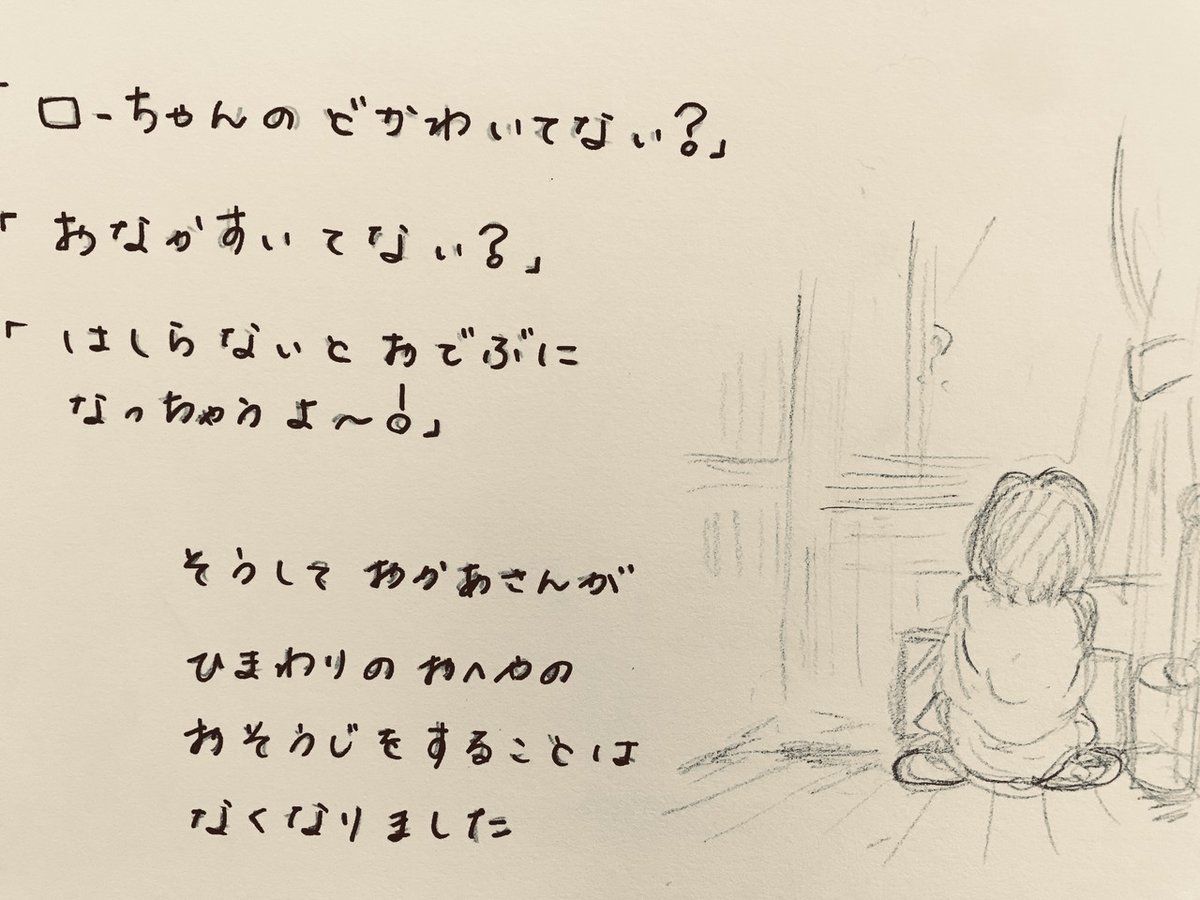 「ローちゃんのどかわいてない?」
「おなかすいてない?」
「はしらないとおでぶに
なっちゃうよ～!」
そうして おかあさんが
ひまわりの おへやの
おそうじをすることは
なくなりました